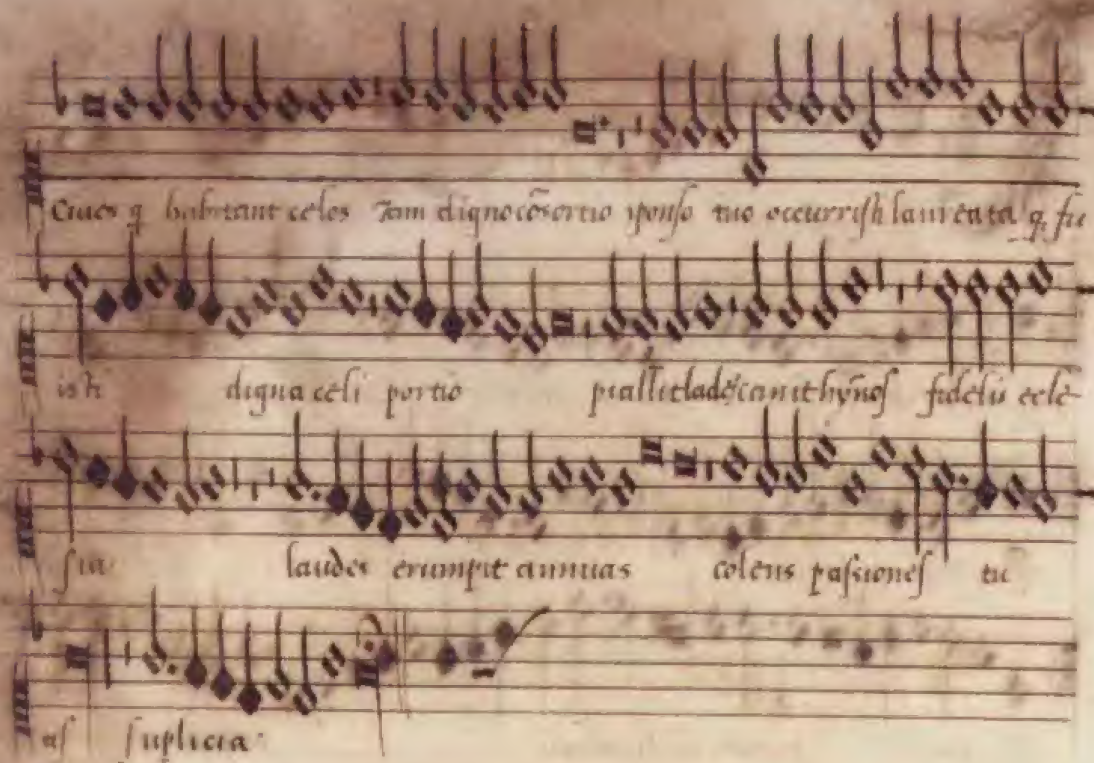 Ciues q̃ habitant celos Jam digno cõsortio sponso tuo occurristi laureata q̃ fu
isti digna celi portio psallit laudes canit hỹnos fidelis eclē-
sia laudes erumpit annuas colens passiones tu
as suplicia